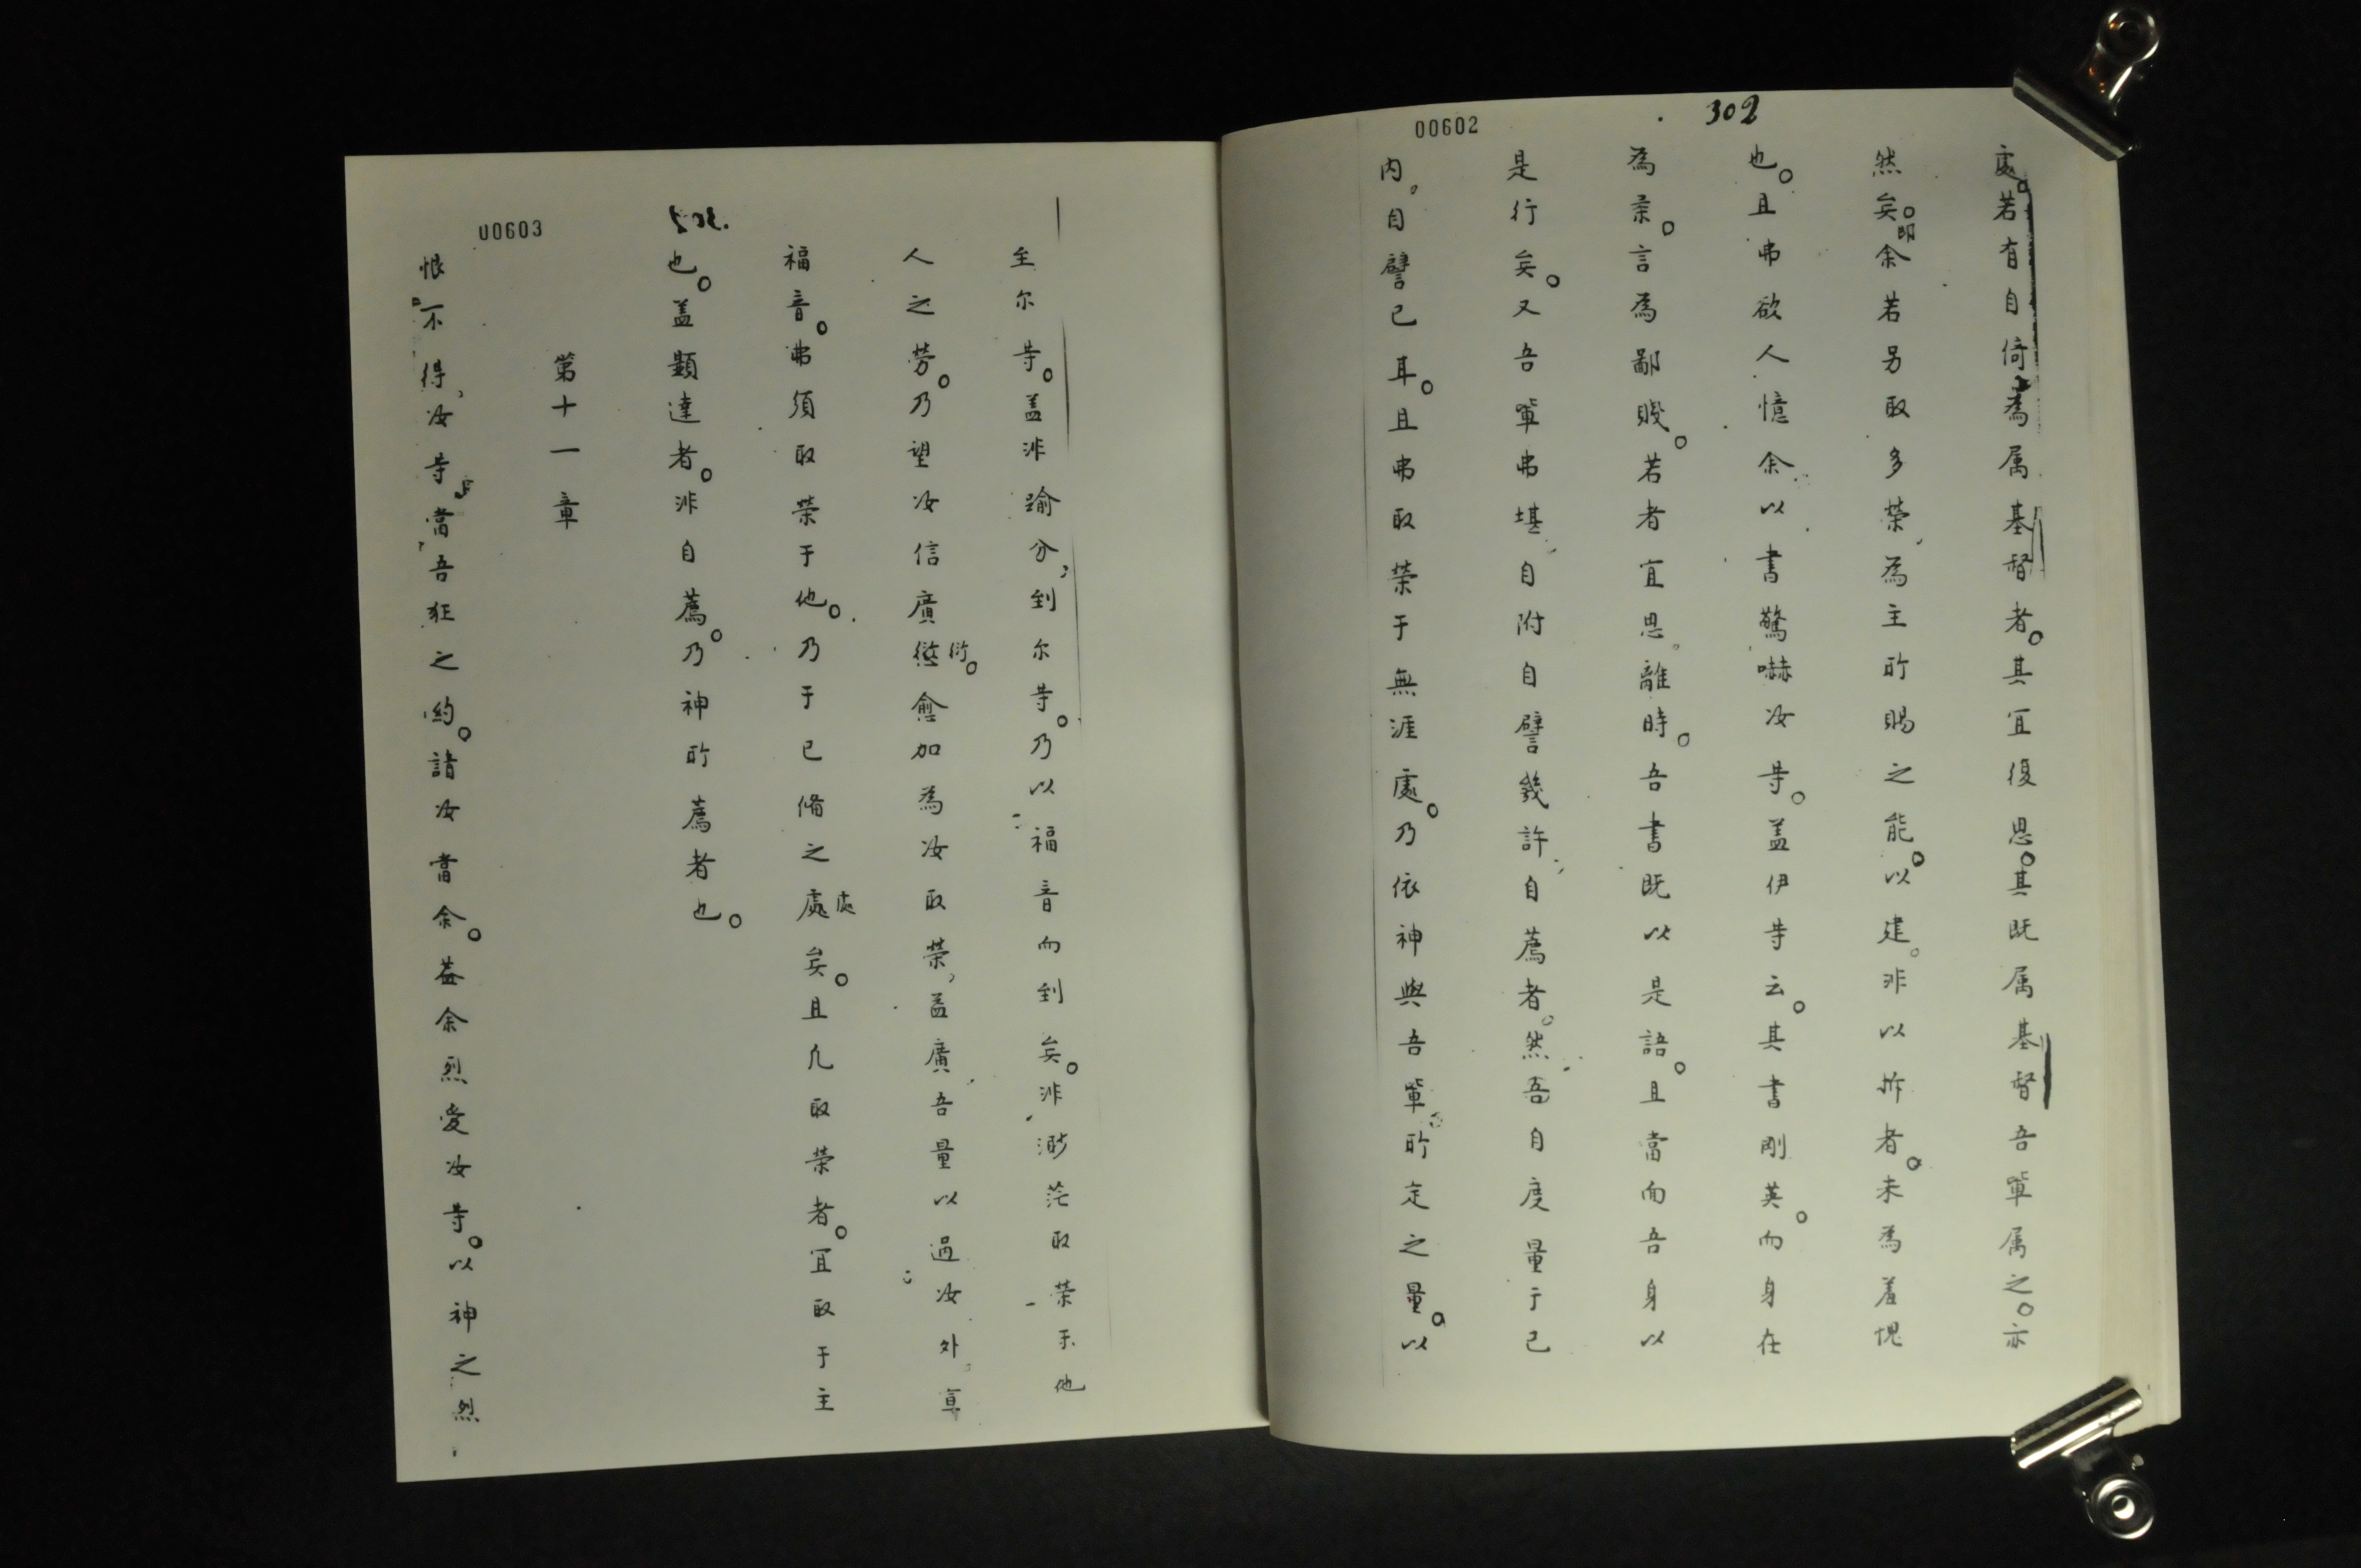 302
00602
處。若有自倚為属基督者。其宜復思。其既属基督吾軰属之。亦
然矣。即余若另取多榮、為主所賜之能。以建。非以拆者。未為羞愧
也。且弗欲人憶余以書驚嚇汝等。盖伊等云。其書剛英。而身在
為柔。言為鄙賤。若者宜思。離時。吾書既以是語。且當面吾身以
是行矣。又吾軰弗堪、自附自譬幾許、自薦者。然吾自度量于己
内、自譬己耳。且弗取榮于無涯處。乃依神與吾軰所定之量。以
00603
至尔等。盖非踰分、到尔等。乃以福音而到矣。非渺茫取榮于他
人之劳。乃望汝信廣愆衍。愈加為汝取榮、盖廣吾量以過汝外、
福音。弗須取榮于他。乃于已脩之處處矣。且凢取榮者。宜取于主
也。盖顯達者。非自薦。乃神所薦者也。
第十一章
恨不得、汝等當吾狂之約。請汝當余。盖余烈愛汝等。以神之烈